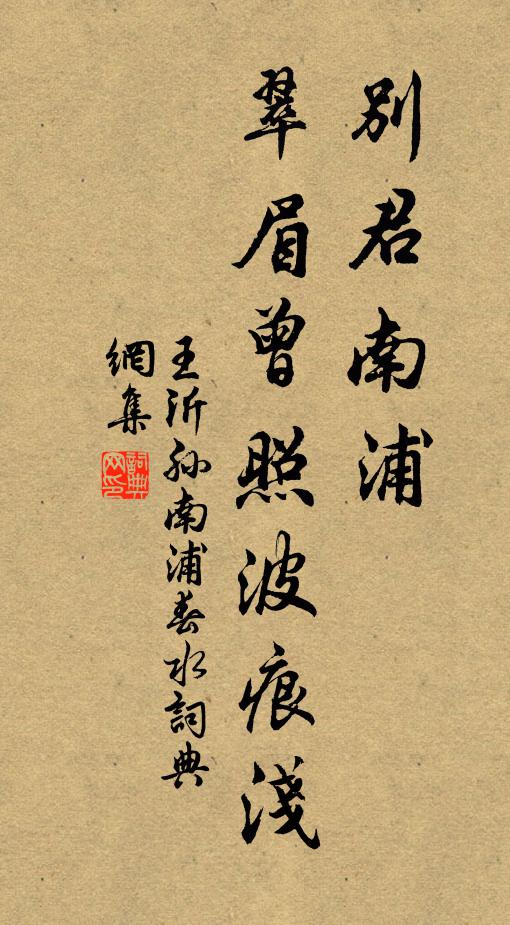 別君南浦
翠眉曾照波痕淺
王沂孫南浦春水詞典
網集
詞典
网印